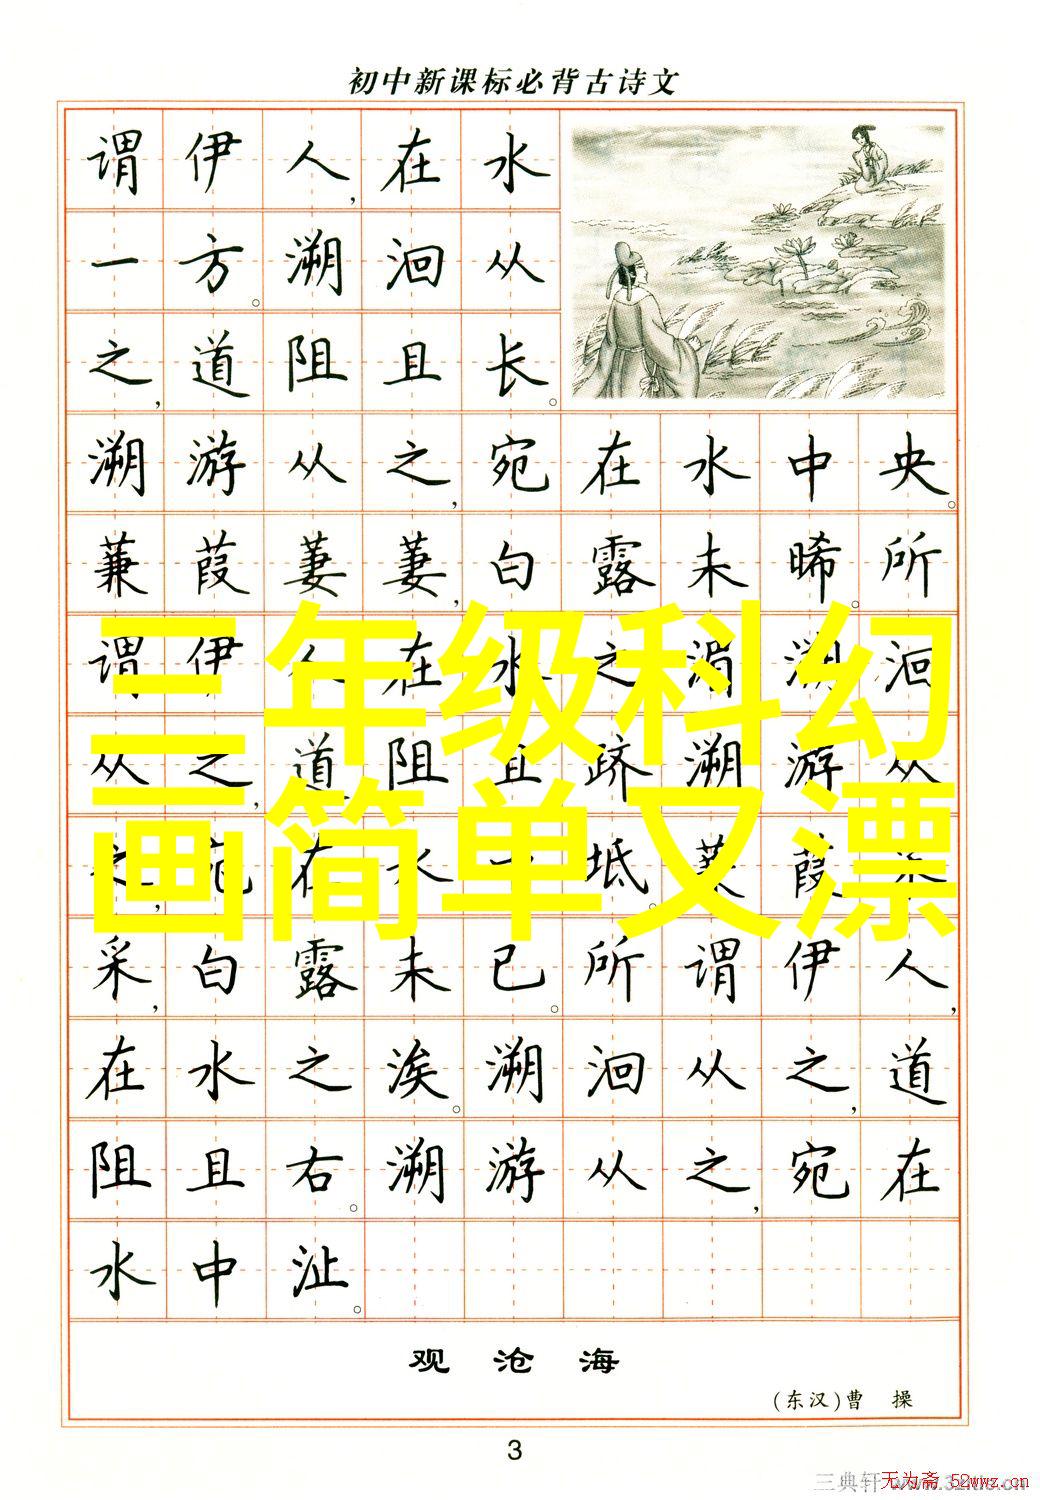 初中新课标必背古诗文
谓伊人,在水
一方。溯洄从
之,道阻且长。
溯游从之,宛在水中央。
蒹葭萋萋,白露未晞。所
谓伊人在水之湄溯洄
三年级科幻
从之,道阻且跻溯游从
画简单又漂
之,宛在水坻。蒹葭采
采,白露未已。所谓伊人,
在水之涘。溯洄从之,道
阻且右。溯游从之,宛在
水中沚。
观沧海
(东汉)曹 操
3
三典轩
无为斋 52wwz.cn